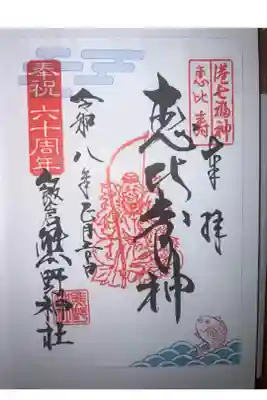 港七福神
恵比寿
奉拝
恵比寿神
令和八年正月吉日
奉祝 六十周年
飯倉熊野神社